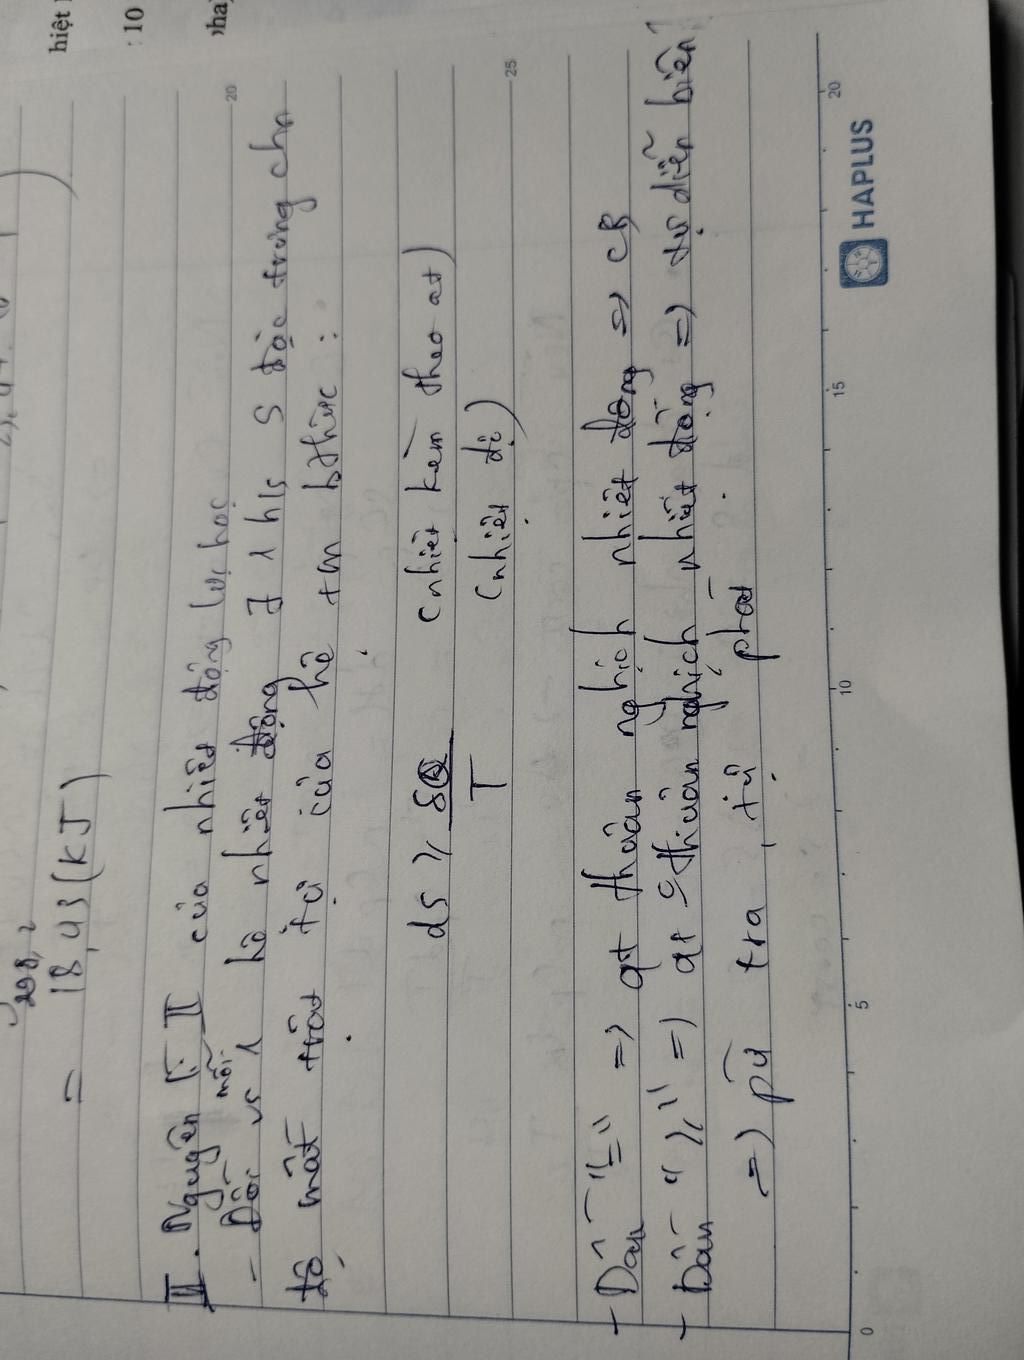 hiệt
: 10
pha)
298,2
= 18,43 (KJ)
II. Nguyên lí II của nhiệt động lực học
- Đối vs mỗi 1 hệ nhiệt động ∃ 1 hls S đặc trưng cho
độ mất trật tự của hệ tm bthức :
dS ≥ δQ (nhiệt kèm theo qt)
T (nhiệt độ)
- Dấu "=" => qt thuận nghịch nhiệt động => CB
- Dấu ">" => qt thuận nghịch nhiệt động => tự diễn biến
=> pứ xra tự phát
HAPLUS
20
25
0
5
10
15
20